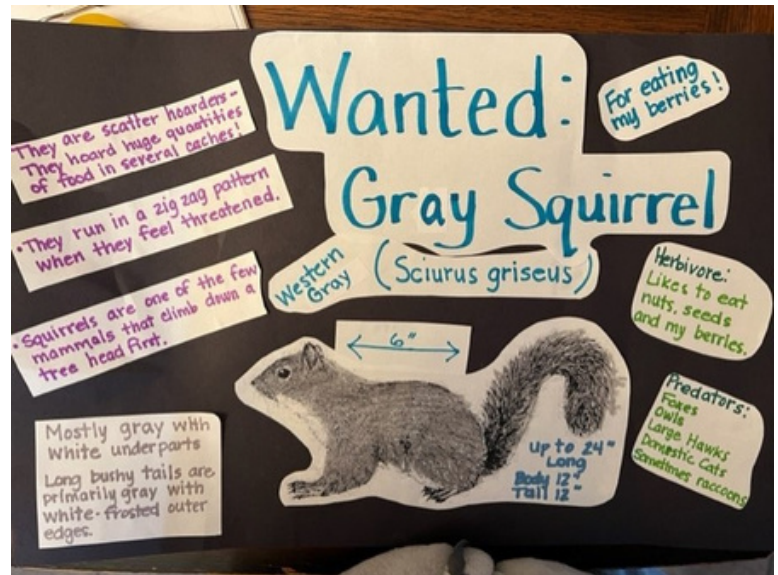 Wanted:
Gray Squirrel
(Sciurus griseus)
Western
Gray
For eating
my berries!
They are scatter hoarders-
They hoard huge quantities
of food in several caches!
•They run in a zig zag pattern
when they feel threatened.
•Squirrels are one of the few
mammals that climb down a
tree head first.
Mostly gray with
white underparts
Long bushy tails are
primarily gray with
white-frosted outer
edges.
6"
up to 24"
Long
Body 12"
Tail 12"
Herbivore:
Likes to eat
nuts, seeds
and my berries.
Predators:
Foxes
Owls
Large Hawks
Domestic Cats
Sometimes raccoons